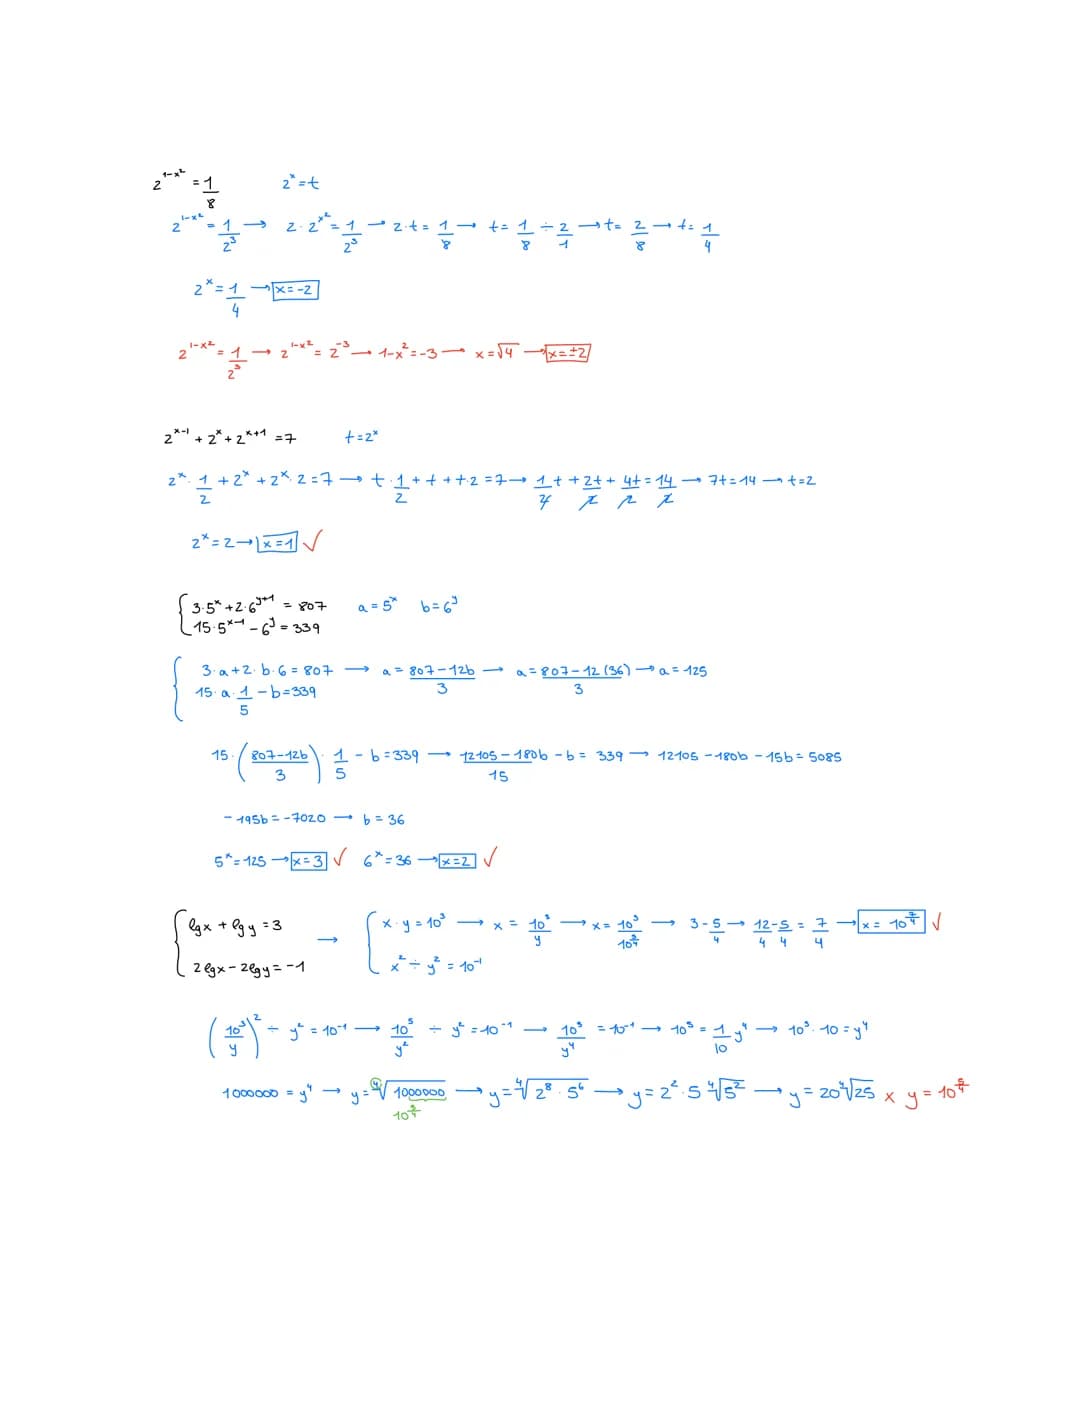 2^{1-x²} = 1/8    2^x = t
2^{1-x²} = 1/2³ → 2·2^{x²} = 1/2³ → 2·t = 1/8 → t = 1/8 ÷ 2/1 → t = 2/8 → t = 1/4
2^x = 1/4 → x = -2
2^{1-x²} = 1/2³ → 2^{1-x²} = 2^{-3} → 1-x² = -3 → x = √4 → x = ±2
2^{x-1} + 2^x + 2^{x+1} = 7    t = 2^x
2^x · 1/2 + 2^x + 2^x · 2 = 7 → t · 1/2 + t + t·2 = 7 → 1/2 t + 2t/2 + 4t/2 = 14/2 → 7t = 14 → t = 2
2^x = 2 → x = 1 ✓
{ 3·5^x + 2·6^{y+1} = 807    a = 5^x    b = 6^y
15·5^{x-1} - 6^y = 339
{ 3·a + 2·b·6 = 807 → a = 807-12b/3 → a = 807-12(36)/3 → a = 125
15·a·1/5 - b = 339
15·(807-12b/3)·1/5 - b = 339 → 12105-180b/15 - b = 339 → 12105 - 180b - 15b = 5085
-195b = -7020 → b = 36
5^x = 125 → x = 3 ✓  6^x = 36 → x = 2 ✓
{ lg x + lg y = 3 → { x·y = 10³ → x = 10³/y → x = 10³/10^{5/4} → 3 - 5/4 → 12/4 - 5/4 = 7/4 → x = 10^{7/4} ✓
2 lg x - 2 lg y = -1    x² ÷ y² = 10^{-1}
(10³/y)² ÷ y² = 10^{-1} → 10⁵/y² ÷ y² = 10^{-1} → 10⁵/y⁴ = 10^{-1} → 10⁵ = 1/10 y⁴ → 10⁵·10 = y⁴
1000000 = y⁴ → y = ⁴√1000000 → y = ⁴√2⁸·5⁶ → y = 2²·5 ⁴√5² → y = 20 ⁴√25 x y = 10^{5/4}
10^{5/4}